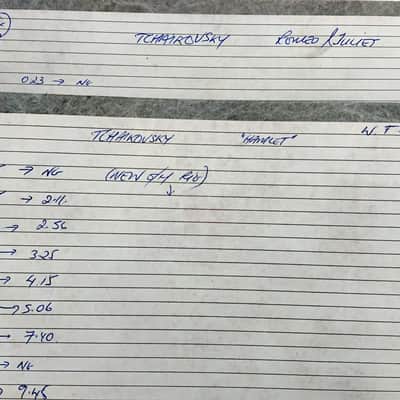 TCHAIKOVSKY ROMEO & JULIET
023 → NG
TCHAIKOVSKY "HAMLET" W.
→ NG (NEW
→ 2.11.
→ 2.56
→ 3.25
→ 4.15
→ 5.06
→ 7.40.
→ NG
→ 9.45